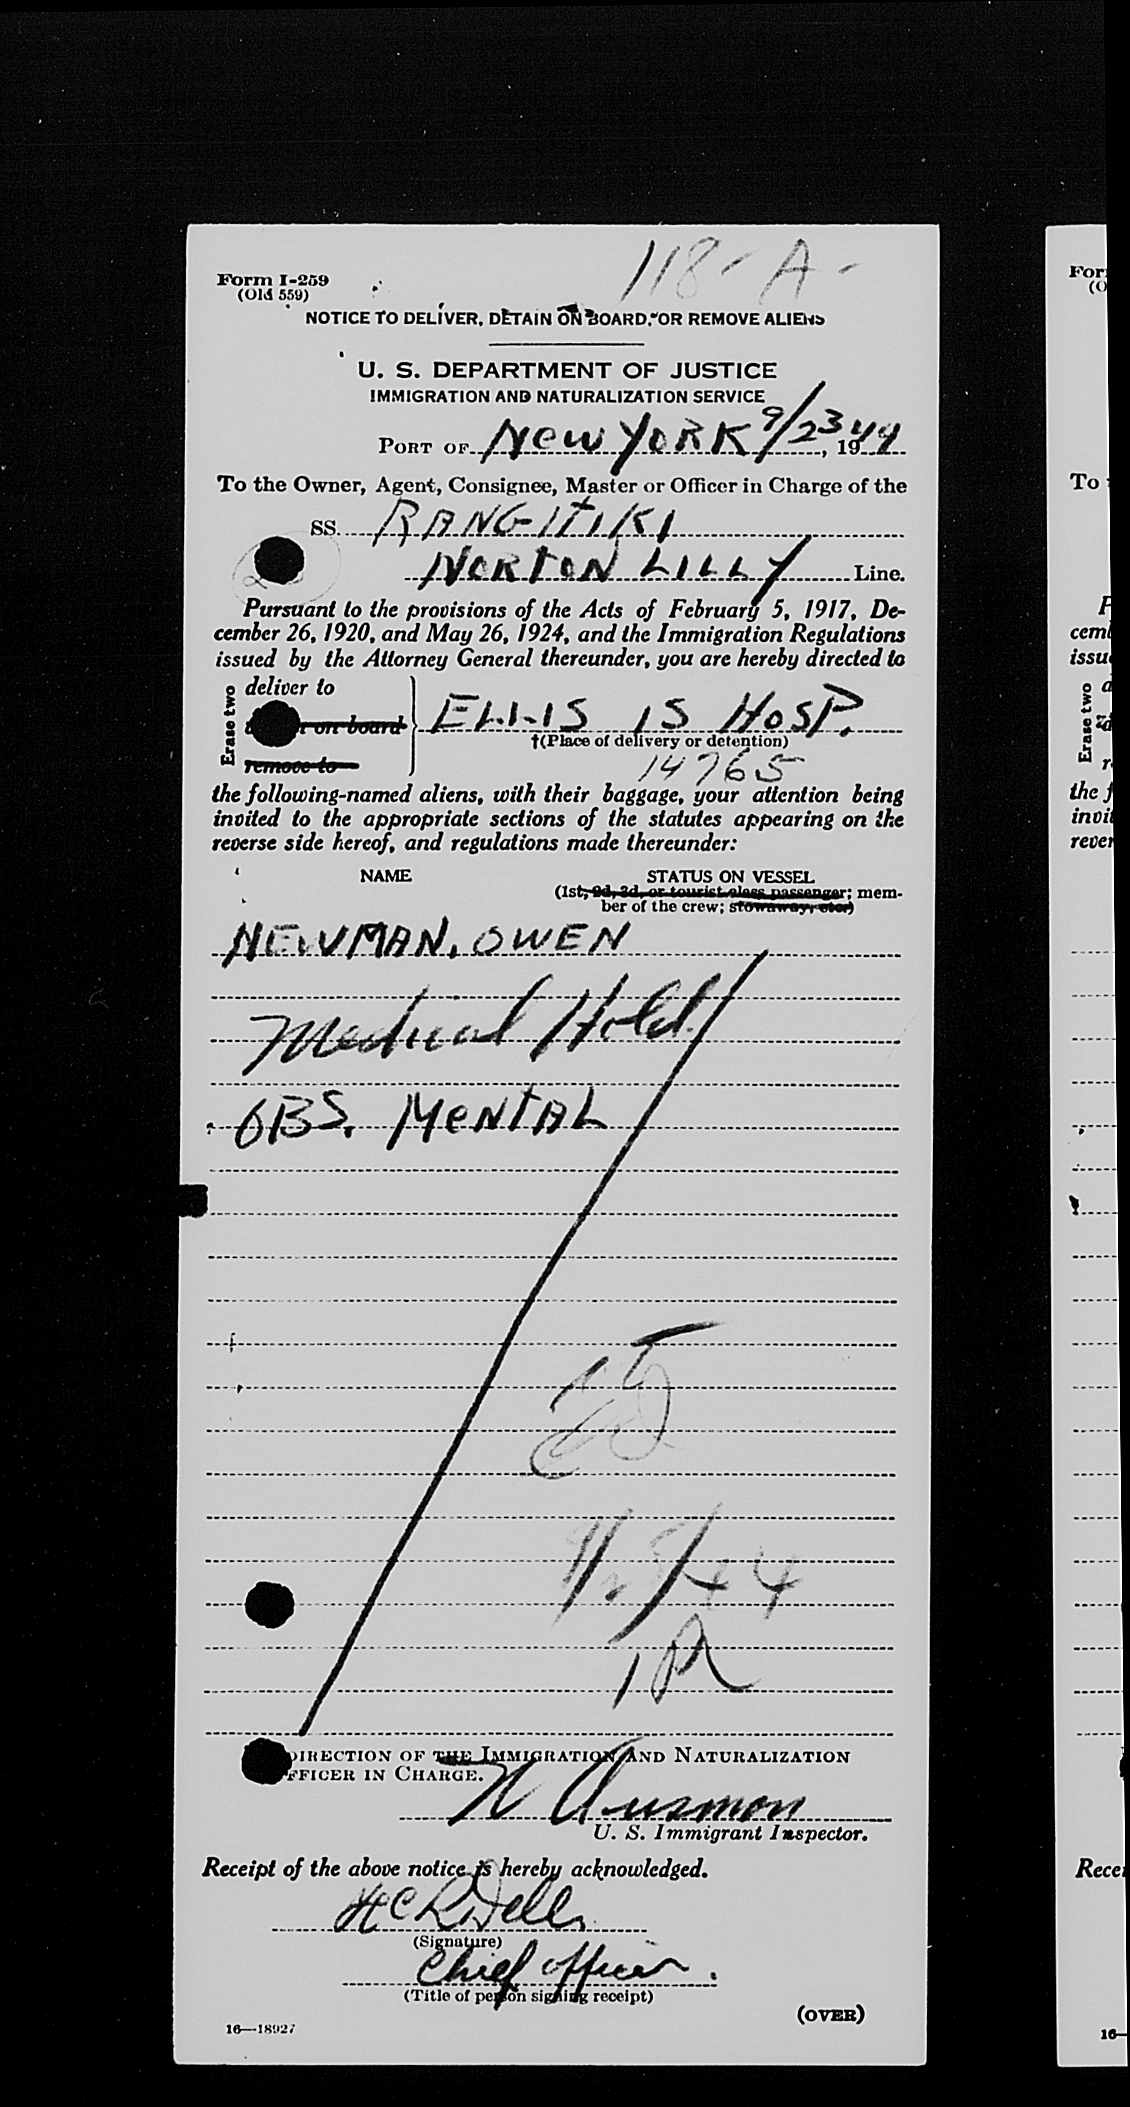 118 - A -
Form I-259
(Old 559)
NOTICE TO DELIVER, DETAIN ON BOARD, OR REMOVE ALIENS
U. S. DEPARTMENT OF JUSTICE
IMMIGRATION AND NATURALIZATION SERVICE
PORT OF NEW YORK 9/23, 1944
To the Owner, Agent, Consignee, Master or Officer in Charge of the
SS. RANGITIKI
NORTON LILLY Line.
Pursuant to the provisions of the Acts of February 5, 1917, De-
cember 26, 1920, and May 26, 1924, and the Immigration Regulations
issued by the Attorney General thereunder, you are hereby directed to
Erase two
deliver to
on board
remove to
ELLIS IS HOSP.
†(Place of delivery or detention)
14765
the following-named aliens, with their baggage, your attention being
invited to the appropriate sections of the statutes appearing on the
reverse side hereof, and regulations made thereunder:
NAME STATUS ON VESSEL
(1st, 2d, 3d, or tourist class passenger; mem-
ber of the crew; stowaway, etc.)
NEWMAN, OWEN
Medical Hold
OBS. MENTAL
DIRECTION OF THE IMMIGRATION AND NATURALIZATION
FFICER IN CHARGE.
U. S. Immigrant Inspector.
Receipt of the above notice is hereby acknowledged.
(Signature)
Chief officer.
(Title of person signing receipt)
(OVER)
16—18927
For
(O
To
P
cem
issu
Erase two
the f
invi
rever
Rece
16—